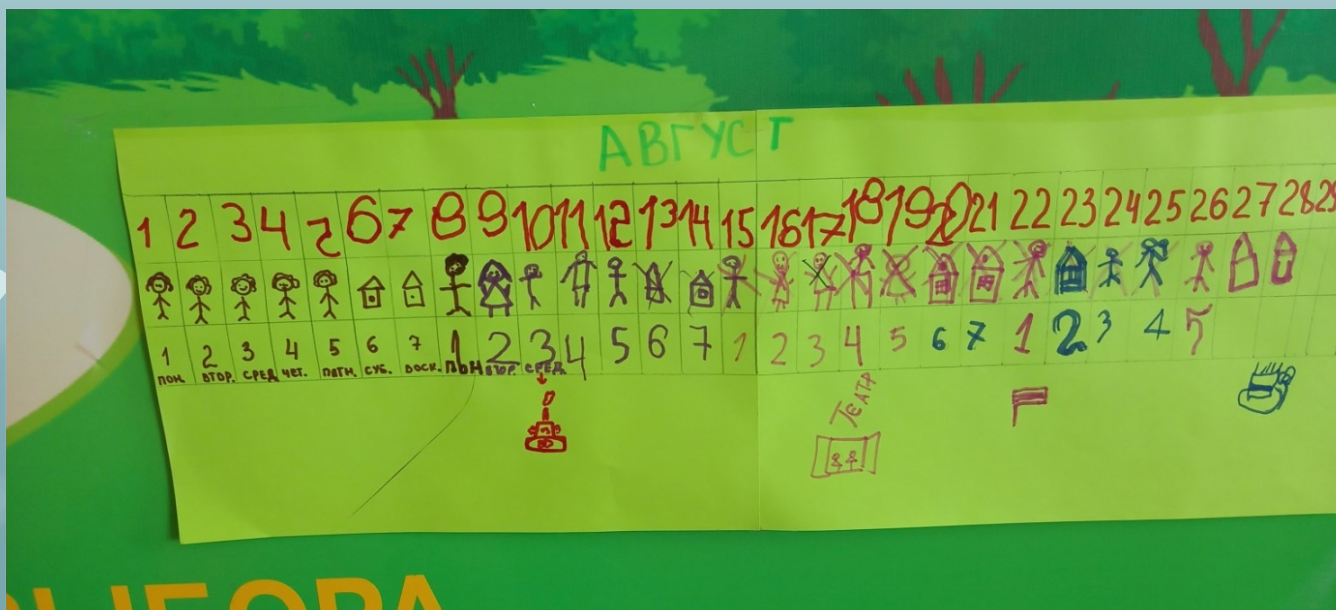 АВГУСТ
1 2 3 4 5 6 7 8 9 10 11 12 13 14 15 16 17 18 19 20 21 22 23 24 25 26 27 28 29
1 2 3 4 5 6 7 1 2 3 4 5 6 7 1 2 3 4 5 6 7 1 2 3 4 5
ПОН. ВТОР. СРЕД ЧЕТ. ПЯТН. СУБ. ВОСК. ПОН ВТОР. СРЕД.
ТЕАТР
ВЫБОРА